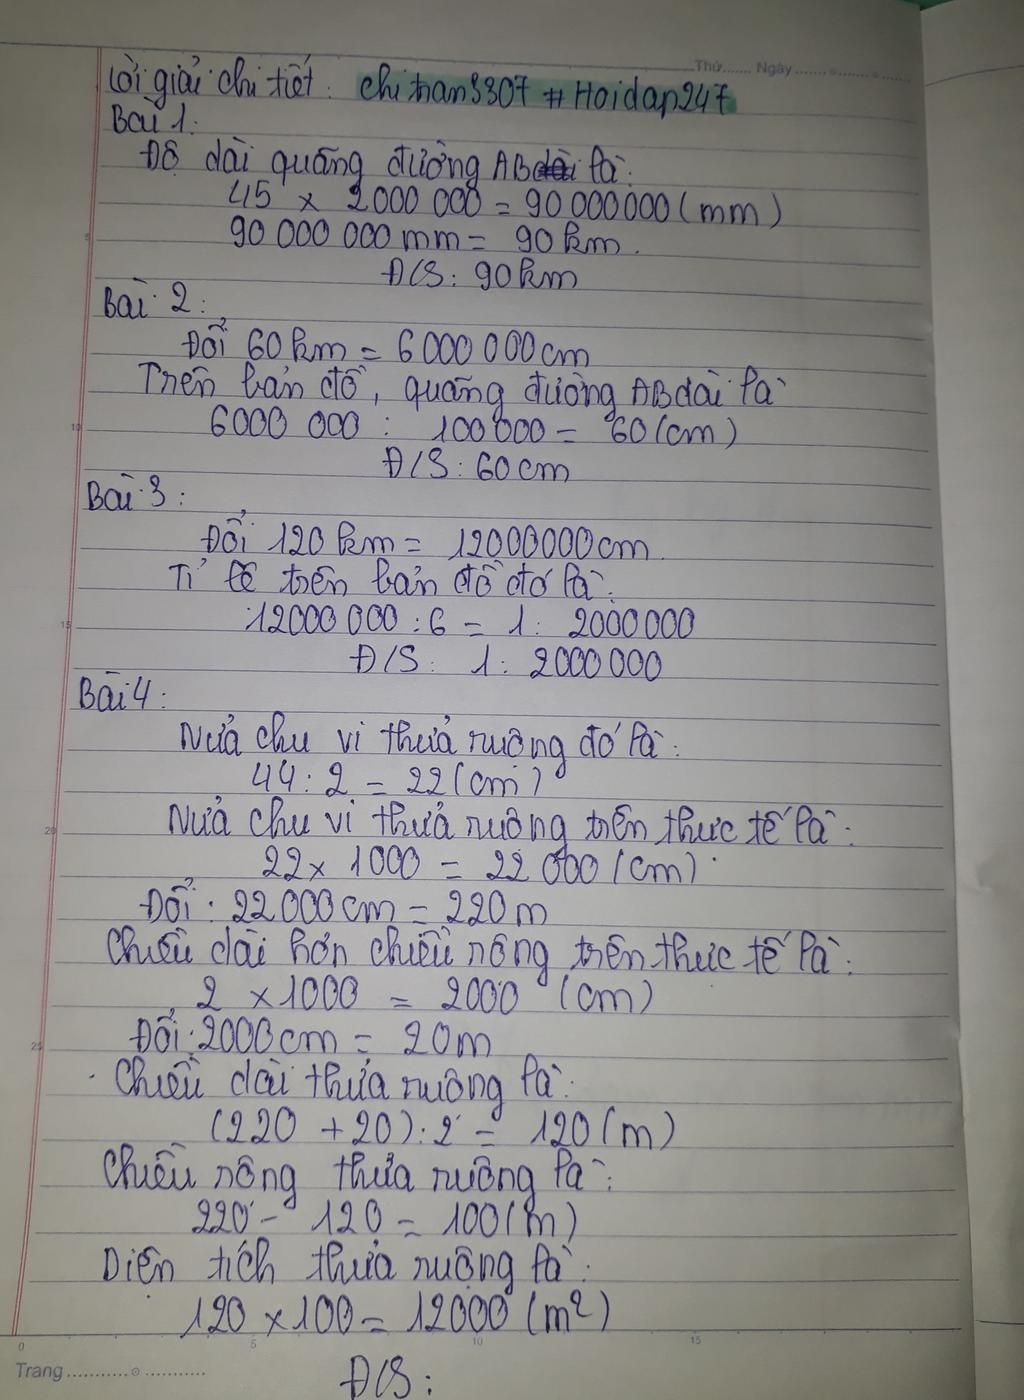 Thứ...... Ngày...............
Lời giải chi tiết: chitran3307 #Hoidap247
Bài 1:
Độ dài quãng đường AB là:
45 x 2000 000 = 90 000000 (mm)
90 000 000 mm = 90 km.
Đ/S: 90km
Bài 2:
Đổi 60km = 6000 000cm
Trên bản đồ, quãng đường AB dài là
6000 000 : 100 000 = 60 (cm)
Đ/S: 60cm
Bài 3:
Đổi 120 km = 12000000cm
Tỉ lệ trên bản đồ đó là:
12000 000 : 6 = 1: 2000000
Đ/S: 1: 2000 000
Bài 4:
Nửa chu vi thửa ruộng đó là:
44 : 2 = 22 (cm)
Nửa chu vi thửa ruộng trên thực tế là:
22 x 1000 = 22 000 (cm)
Đổi: 22 000cm = 220m
Chiều dài hơn chiều rộng trên thực tế là:
2 x 1000 = 2000 (cm)
Đổi: 2000cm = 20m
Chiều dài thửa ruộng là:
(220 + 20) : 2 = 120 (m)
Chiều rộng thửa ruộng là:
220 - 120 = 100 (m)
Diện tích thửa ruộng là:
120 x 100 = 12000 (m²)
0 5 10 15
Trang...............
Đ/S: